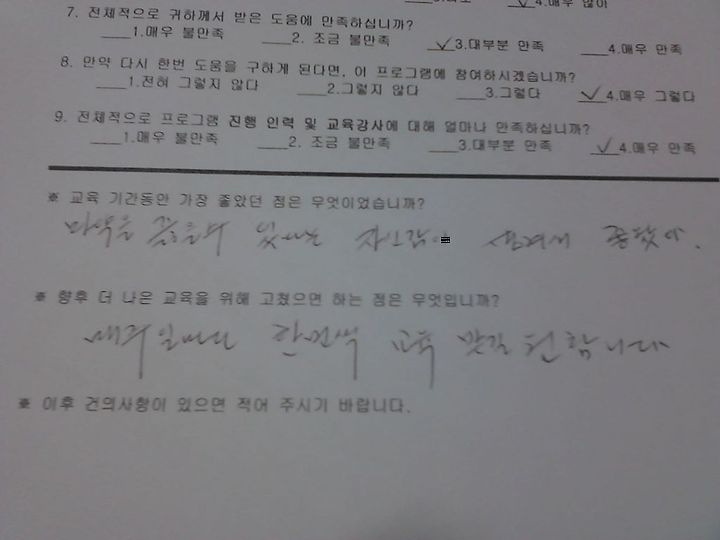 4.매우 많아
7. 전체적으로 귀하께서 받은 도움에 만족하십니까?
___1.매우 불만족 ___2. 조금 불만족 _✓_3.대부분 만족 ___4.매우 만족
8. 만약 다시 한번 도움을 구하게 된다면, 이 프로그램에 참여하시겠습니까?
___1.전혀 그렇지 않다 ___2.그렇지 않다 ___3.그렇다 _✓_4.매우 그렇다
9. 전체적으로 프로그램 진행 인력 및 교육강사에 대해 얼마나 만족하십니까?
___1.매우 불만족 ___2. 조금 불만족 ___3.대부분 만족 _✓_4.매우 만족
※ 교육 기간동안 가장 좋았던 점은 무엇이었습니까?
마약을 끊을수 있다는 자신감이 생겨서 좋았다.
※ 향후 더 나은 교육을 위해 고쳤으면 하는 점은 무엇입니까?
매주 일마다 한번씩 교육 받길 원합니다
※ 이후 건의사항이 있으면 적어 주시기 바랍니다.